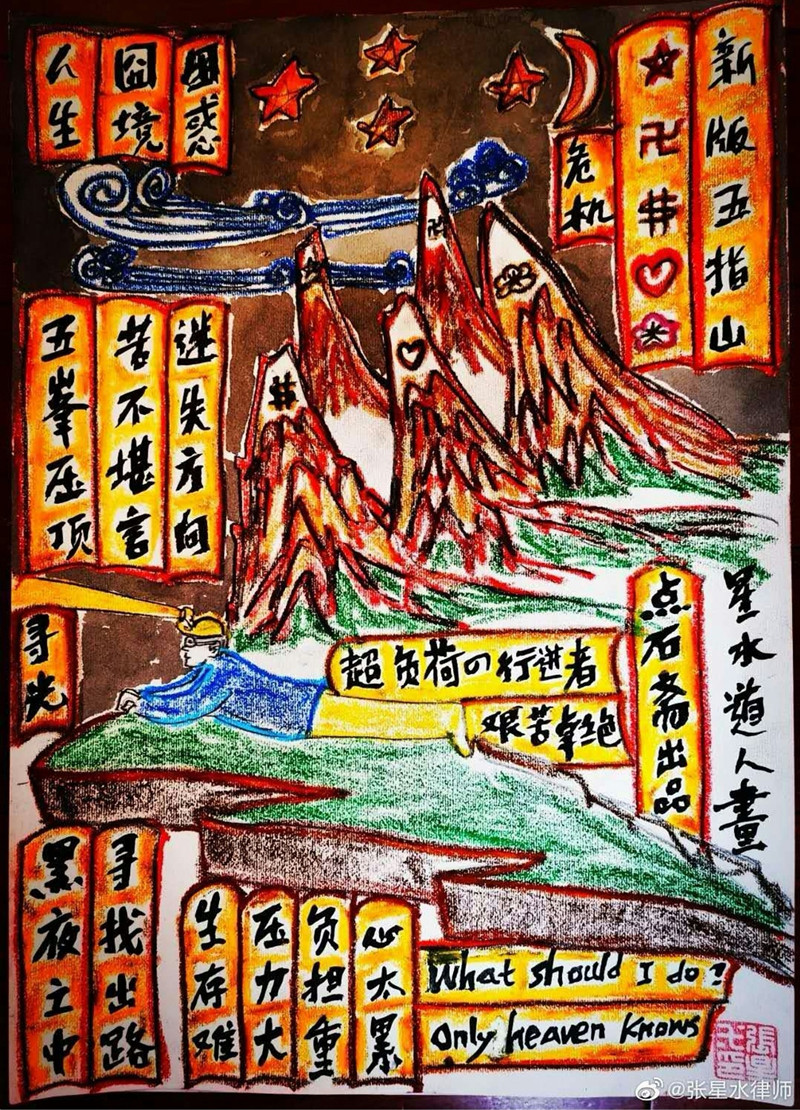 人生
囧境
困惑
危机
★卍#♡✿
新版五指山
五峯压顶
苦不堪言
迷失方向
寻光
超负荷の行进者
艰苦卓绝
点石斋出品
星水道人畫
黑夜之中
寻找出路
生存难
压力大
负担重
心太累
What should I do?
Only heaven knows
@张星水律师